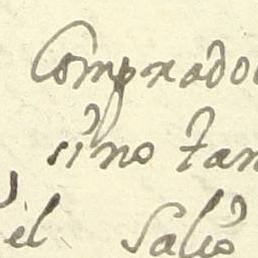 Comprado
sino tan
el Salió